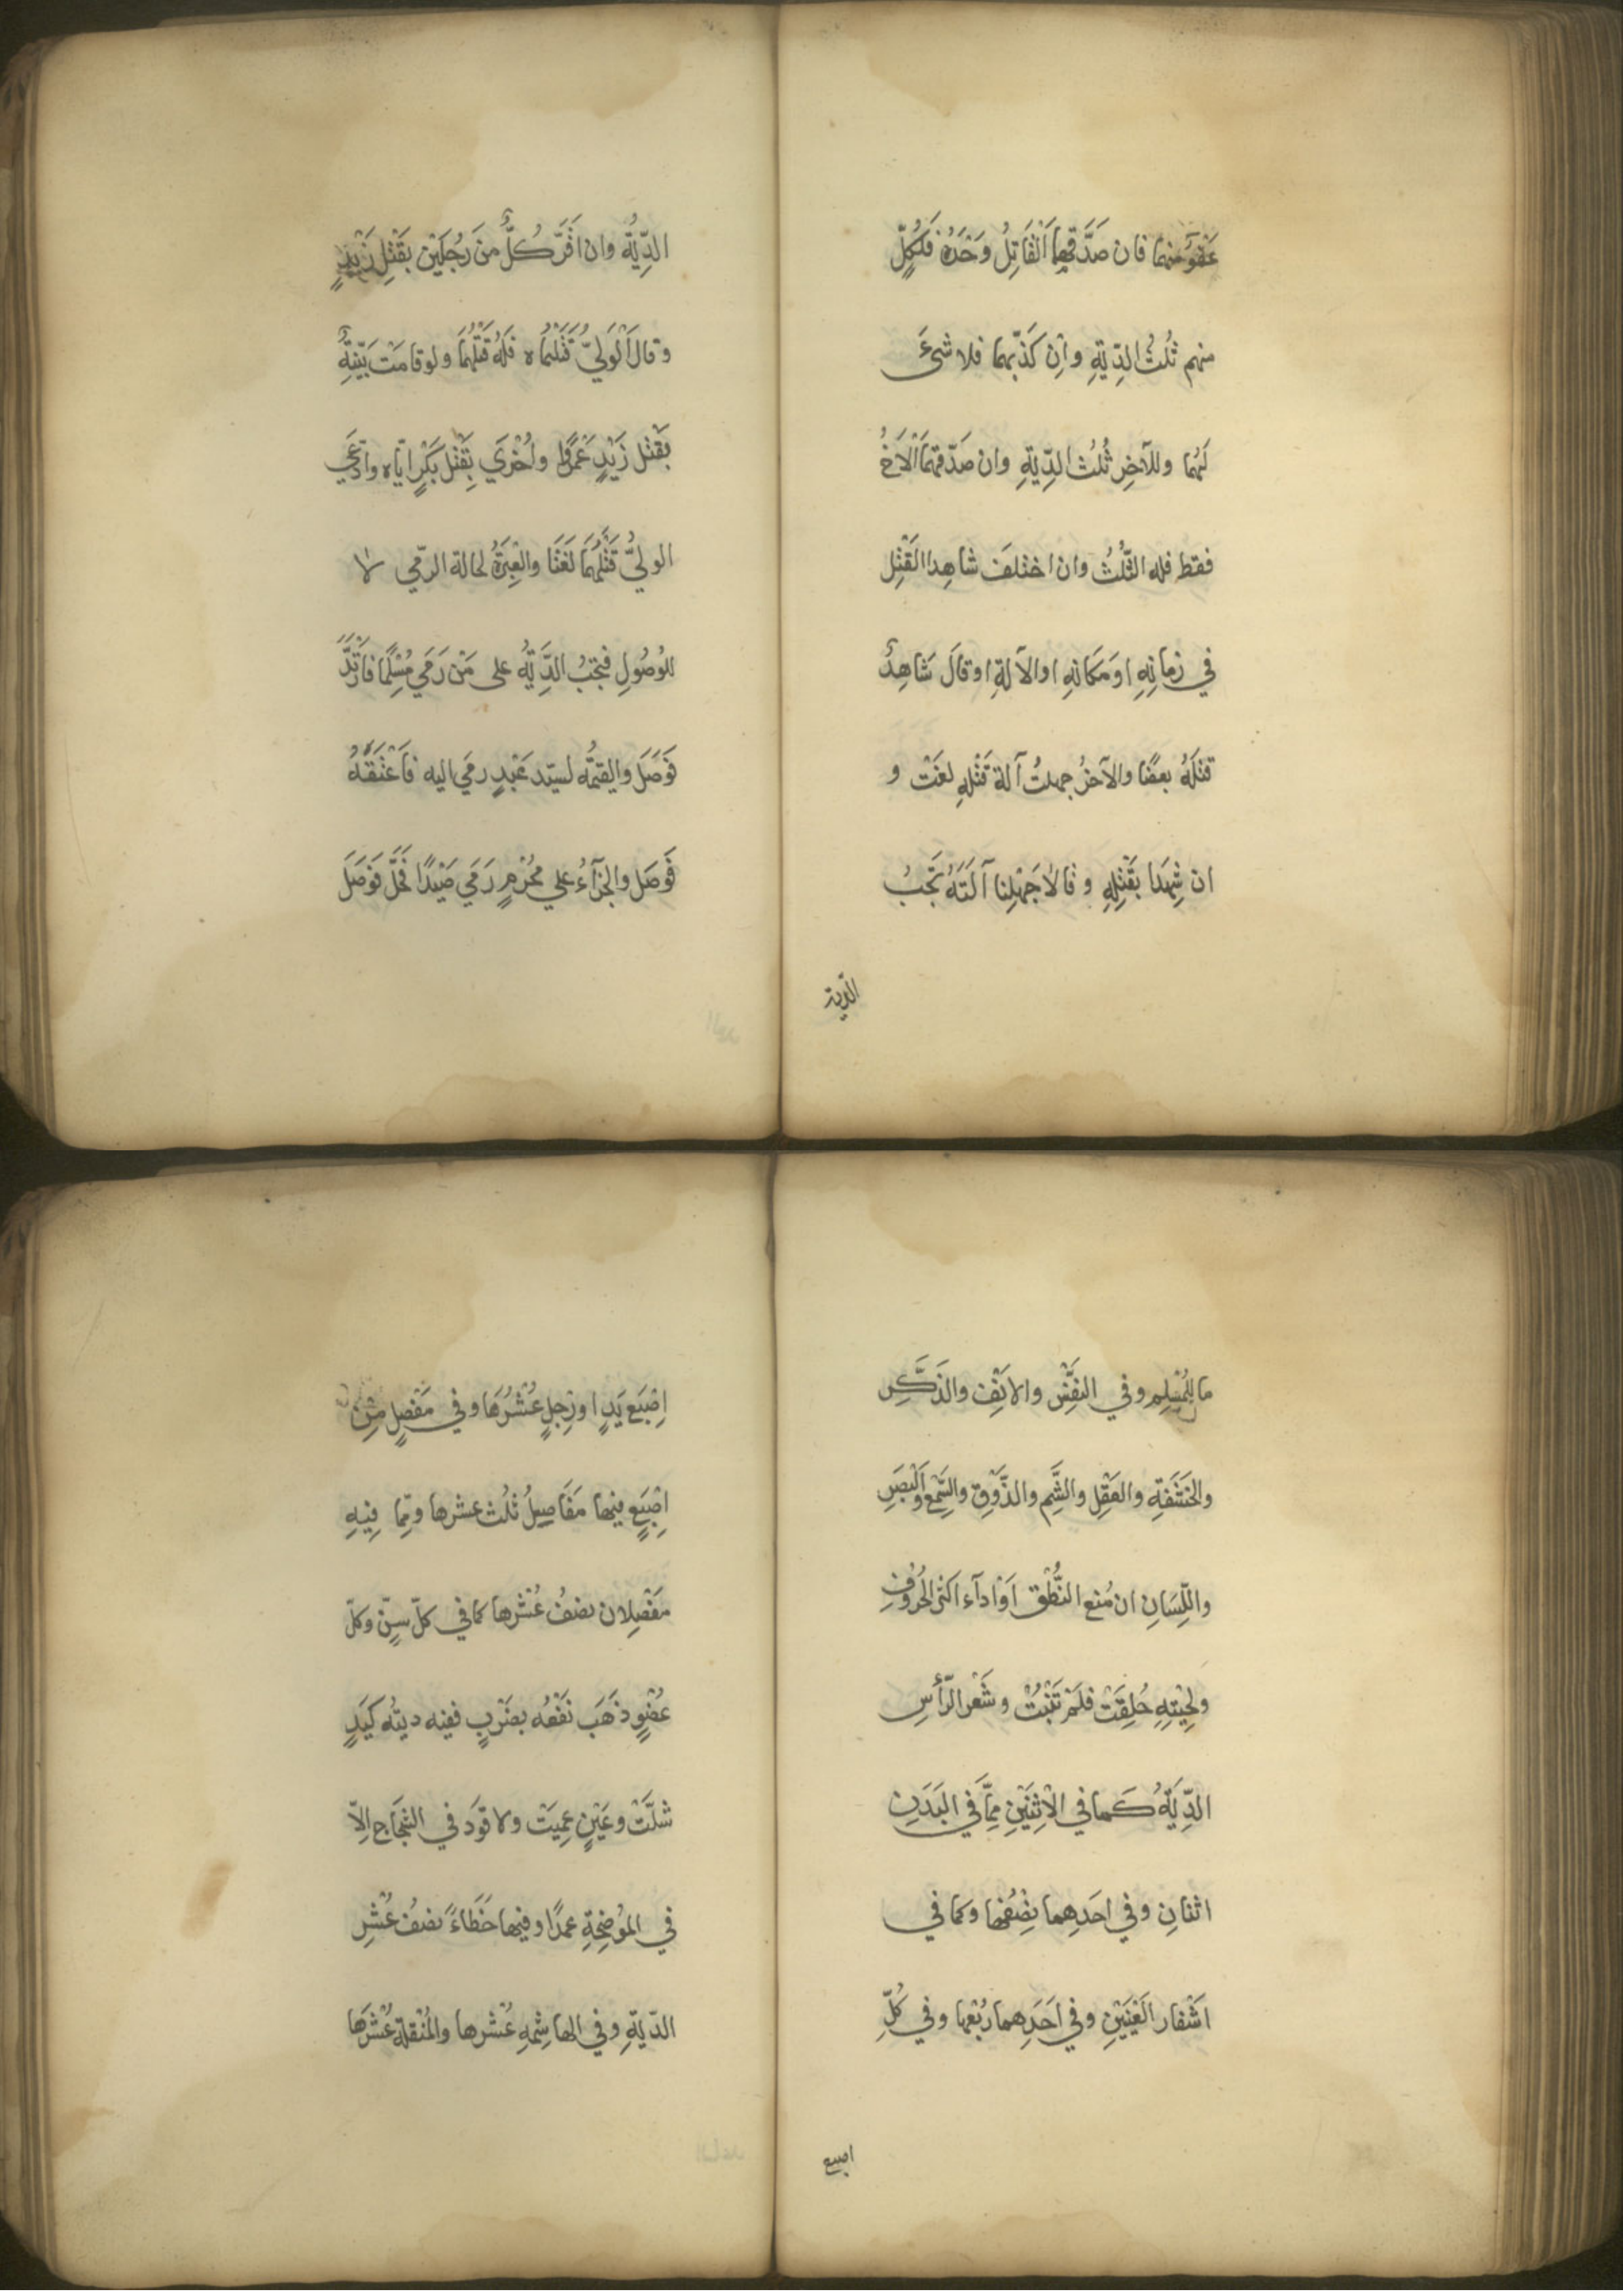 عَفْوٌ منهما فان صَدَّقَهما اَلْقَاتِلُ وَحْدَهُ فَلِكُلٍّ
منهم ثُلُثُ الدِّيَةِ وَاِن كَذَّبهما فلا شَیْءَ
لَهُما وللآخِرِ ثُلُثُ الدِّيَةِ وان صَدَّقهمَا اَلْاَخُ
فقط فله الثُّلُثُ وان اختلفَ شاهِدا القَتْلِ
في زمانِهِ او مَكانِهِ او الآلةِ او قالَ شَاهِدٌ
قتلَهُ بعصًا والآخرُ جهلتُ آلة قَتْلِهِ لغَتْ و
ان شهِدَا بقَتْلِهِ وقالا جَهِلْنا آلَتَهُ تَجِبُ
الدّية
الدِّيَةُ وان اَقَرَّ كُلٌّ منَ رَجُلَيْنِ بقَتْلِ زَيْدٍ
وقال اَلْوَليُّ قَتَلْتُماه فلَهُ قَتْلُهُمَا ولو قامَتْ بَيّنةٌ
بقَتْلِ زَيْدٍ عَمْرًوا واُخْرَي بِقَتْلِ بَكْرٍ ايّاه وادّعَي
الوليُّ قَتْلَهُمَا لَغَتَا والعِبْرَةُ لحالة الرّمي لا
للوُصُولِ فتجبُ الدِّيَةُ على مَنْ رَمَي مُسْلِمًا فَارْتَدَّ
فَوَصَلَ والقيمَةُ لسيّد عَبْدٍ رمَي اليه فَاَعْتَقَهُ
فَوَصَلَ والجزآءُ علي مُحْرِمٍ رَمَي صَيْدًا فَحَلَّ فَوَصَلَ
ما للمُسْلِمِ وفي النفْسِ والانْفِ والذَّكَرِ
والحَشَفَةِ والعَقْلِ والشَّمِ والذَّوْقِ والسَّمْعِ وَالْبَصَرِ
واللِّسَانِ ان مُنع النُّطْق اَوْ ادآء اكثر الحُرُوْفِ
ولِحْيَتِهِ حُلِقَتْ فلَمْ تَنْبُتْ وشَعْرِ الرّأسِ
الدِّيَةُ كَما في الاثنَيْنِ مِمَّا في البَدَنِ
اثنانِ وفي احَدِهِما نِصْفُها وكما في
اَشْفار العَيْنَيْنِ وفي احَدِهِما رُبْعُها وفي كُلِّ
اصبع
اِصْبَعِ يَدٍ او رِجْلٍ عُشْرُهَا وفي مَفْصِلٍ مِنْ
اِصْبَعٍ فيها مَفَاصِلُ ثُلُث عشرها وممّا فِيْهِ
مَفْصِلان نصْفُ عُشْرها كما في كلّ سِنّ وكلّ
عُضْوٍ ذَهَب نَفْعُه بضَرْبٍ ففيه ديتُه كَيَدٍ
شلَّتْ وعَيْنٍ عمِيَتْ ولا قوَدَ في الشجَاج اِلّا
في المُوْضِحَةِ عمدًا وفيها خَطَاءً نصْفُ عُشْرِ
الدّيَةِ وفي الهاشِمةِ عُشرها والمُنْقلة عُشْرُهَا